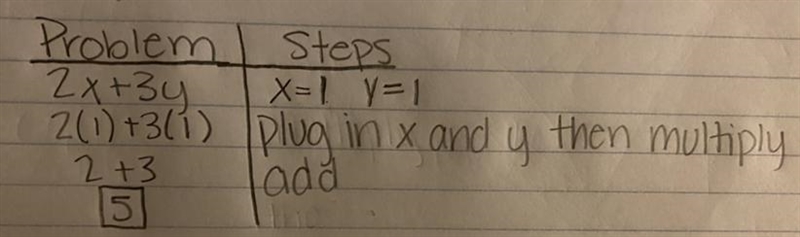 Problem Steps
2x+3y x=1 y=1
2(1)+3(1) plug in x and y then multiply
2+3 add
5